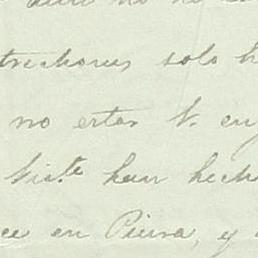 aun no he
trechones solo h
no estar V. en
Siste han hech
ce en Piura, y